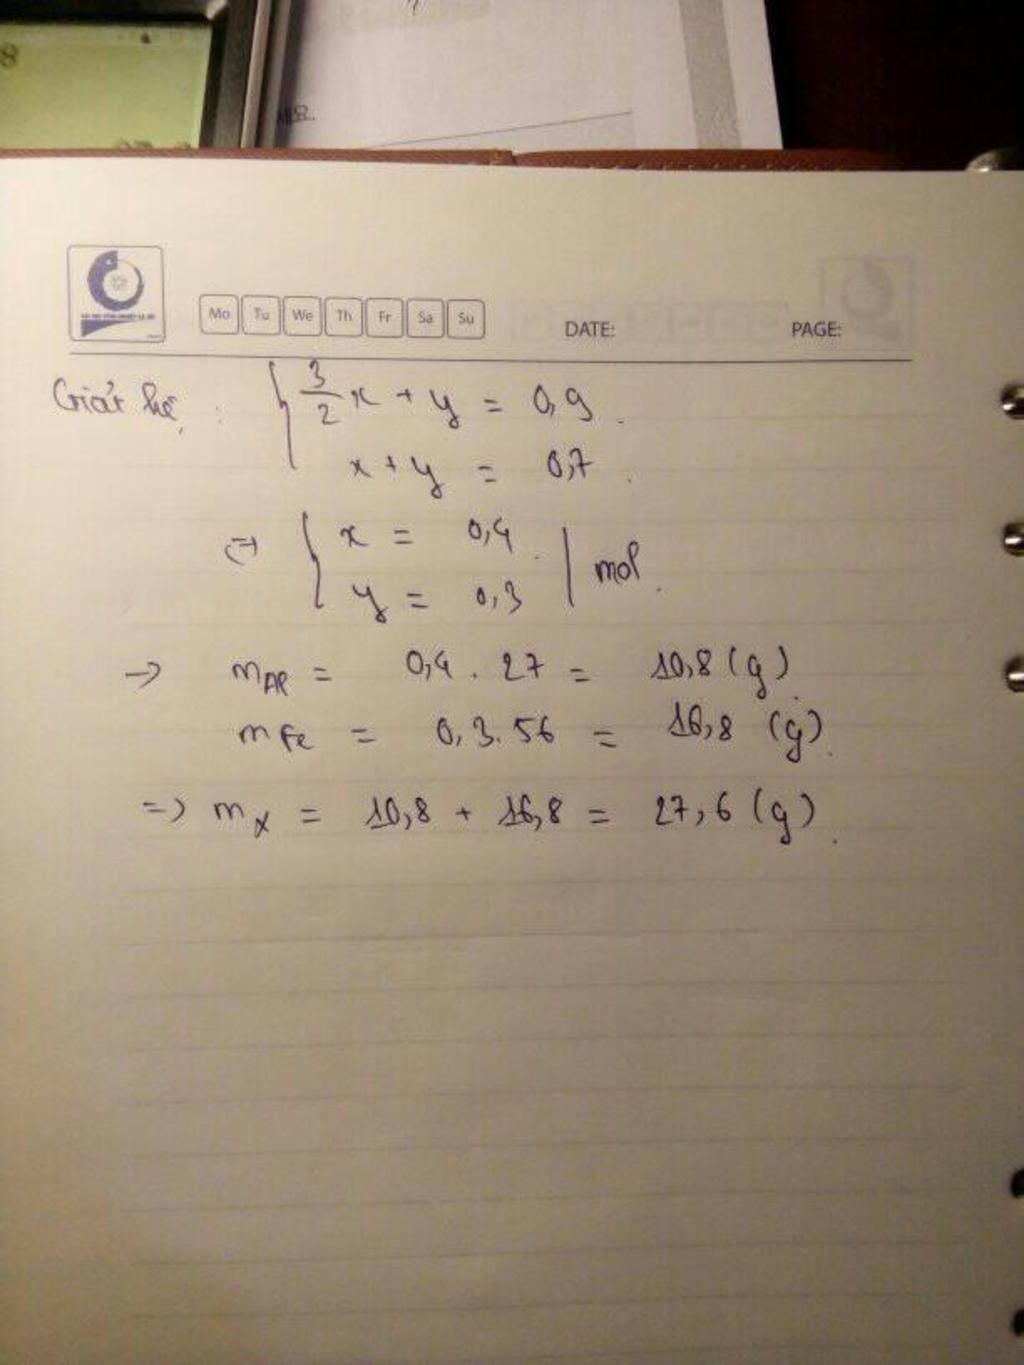 8
Mo Tu We Th Fr Sa Su DATE: PAGE:
Giải hệ : { 3/2 x + y = 0,9 .
x + y = 0,7 .
(=) { x = 0,4 .
y = 0,3 | mol .
-> mAl = 0,4 . 27 = 10,8 (g) .
mFe = 0,3 . 56 = 16,8 (g) .
=> mX = 10,8 + 16,8 = 27,6 (g) .